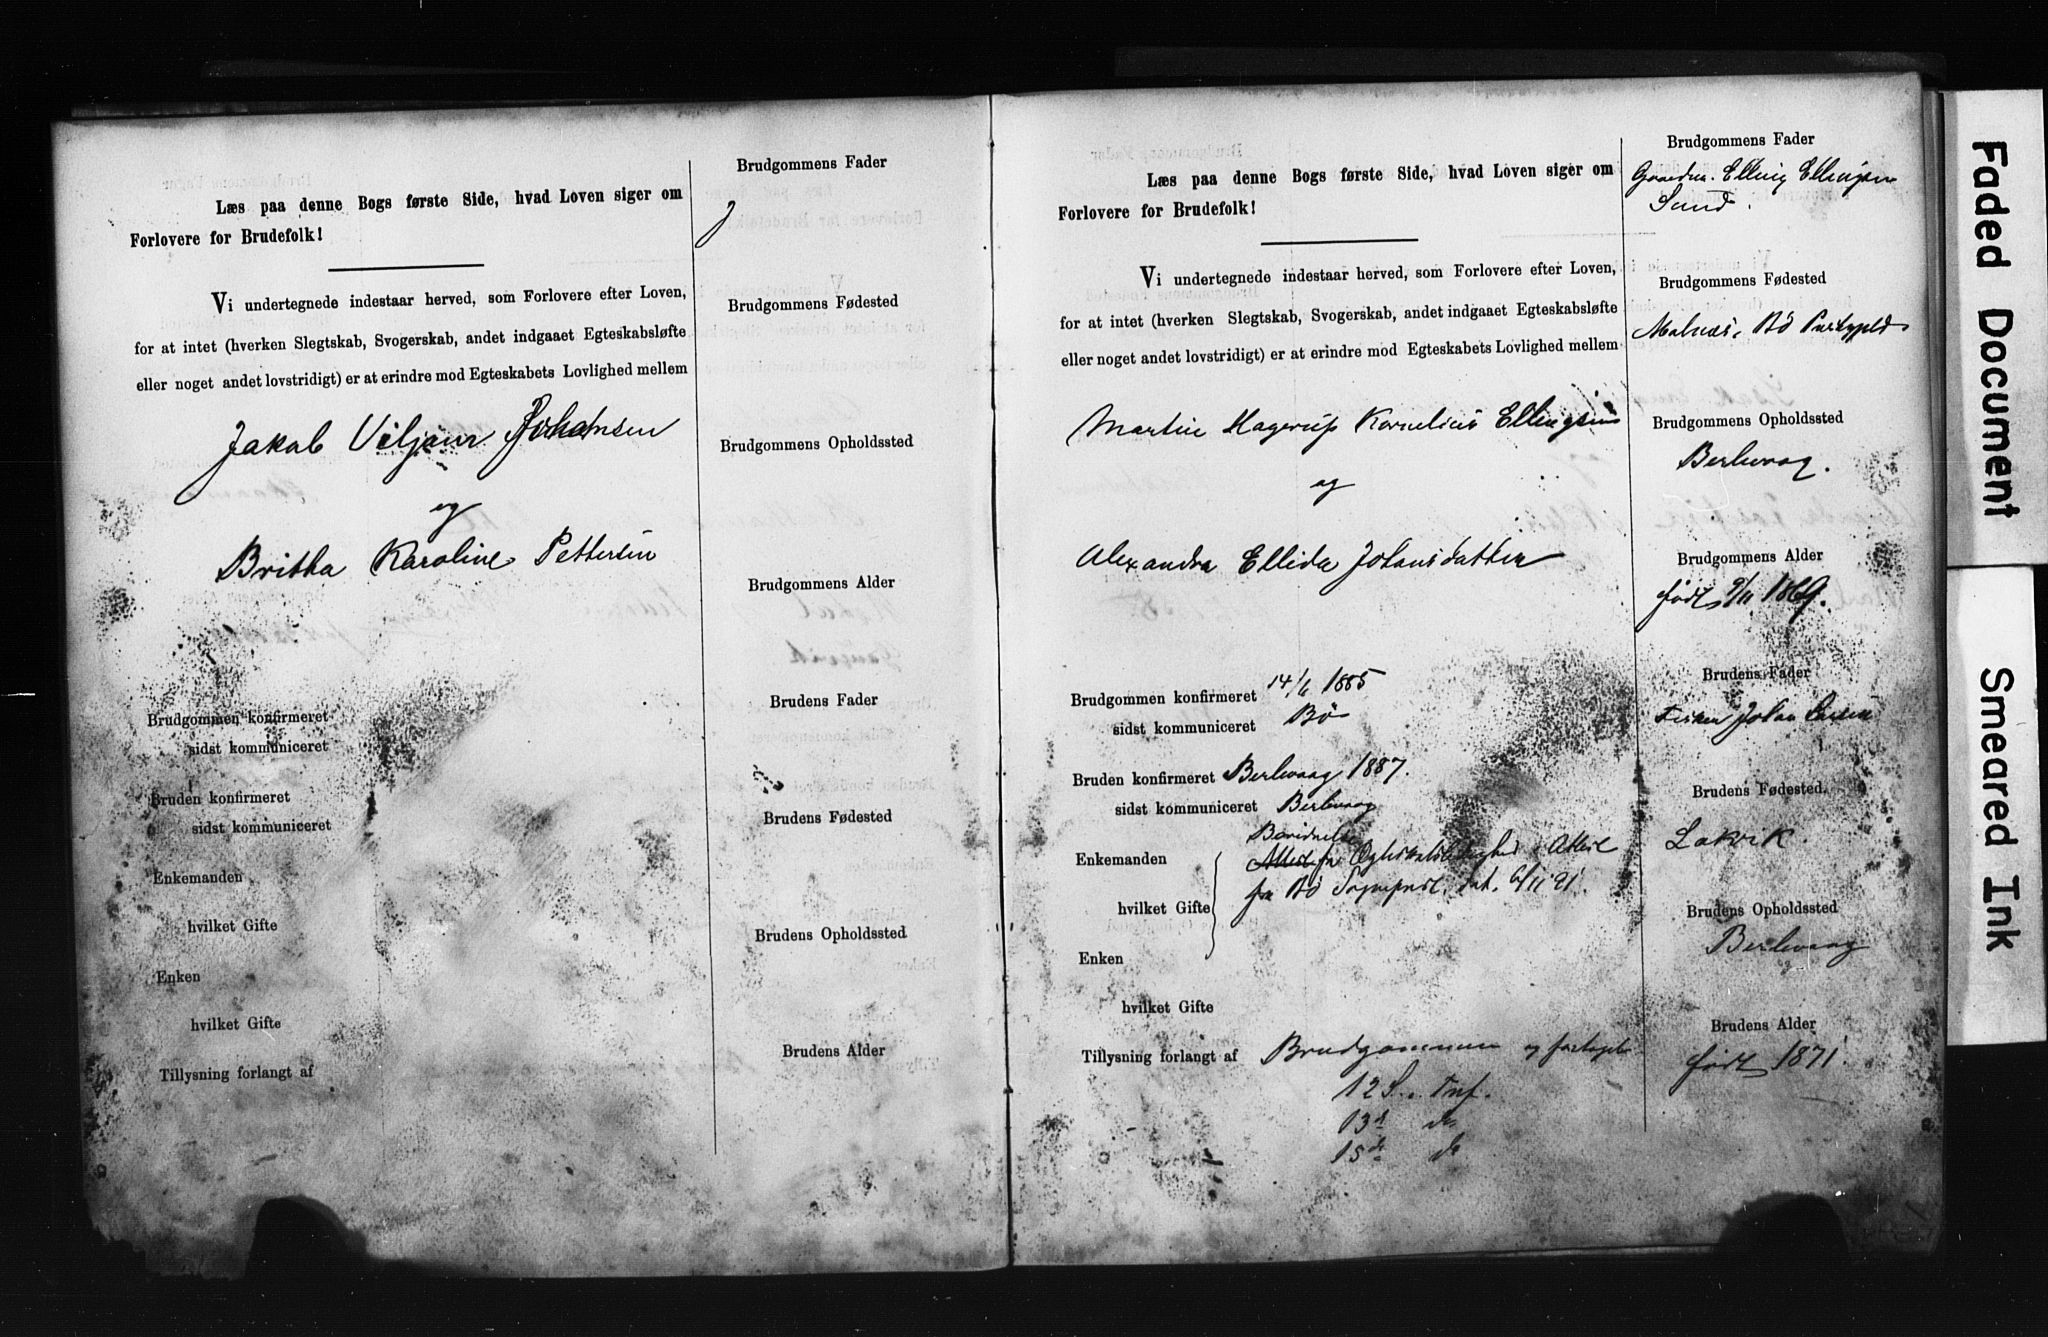 Læs paa denne Bogs første Side, hvad Loven siger om
Forlovere for Brudefolk!
Vi undertegnede indestaar herved, som Forlovere efter Loven,
for at intet (hverken Slegtskab, Svogerskab, andet indgaaet Egteskabsløfte
eller noget andet lovstridigt) er at erindre mod Egteskabets Lovlighed mellem
Jakob Viljam Johansen
og
Britha Karoline Pettersen
Brudgommen konfirmeret
sidst kommuniceret
Bruden konfirmeret
sidst kommuniceret
Enkemanden
hvilket Gifte
Enken
hvilket Gifte
Tillysning forlangt af
Brudgommens Fader
Brudgommens Fødested
Brudgommens Opholdssted
Brudgommens Alder
Brudens Fader
Brudens Fødested
Brudens Opholdssted
Brudens Alder
Læs paa denne Bogs første Side, hvad Loven siger om
Forlovere for Brudefolk!
Vi undertegnede indestaar herved, som Forlovere efter Loven,
for at intet (hverken Slegtskab, Svogerskab, andet indgaaet Egteskabsløfte
eller noget andet lovstridigt) er at erindre mod Egteskabets Lovlighed mellem
Martin Hagerup Kornelius Ellingsen
og
Alexandra Ellida Johansdatter
Brudgommen konfirmeret 14/6 1885
sidst kommuniceret Bø
Bruden konfirmeret Berlevaag 1887.
sidst kommuniceret Berlevaag
Enkemanden
fra Bø Sogneprest. dat. 6/11 91.
hvilket Gifte
Enken
hvilket Gifte
Tillysning forlangt af Brudgommen og foretaget
12 S. e. Tref.
13d do
15de do
Brudgommens Fader
Gaardm. Elling Ellingsen
Sund.
Brudgommens Fødested
Malnæs, Bø Præstegjeld
Brudgommens Opholdssted
Berlevaag.
Brudgommens Alder
født 9/11 1869.
Brudens Fader
Fisker Johan Larsen
Brudens Fødested.
Lakvik.
Brudens Opholdssted
Berlevaag
Brudens Alder
født 1871.
Faded Document
Smeared Ink